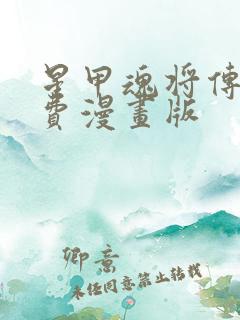 星甲魂将傳
費漫畫版
卿意
未经同意禁止转载